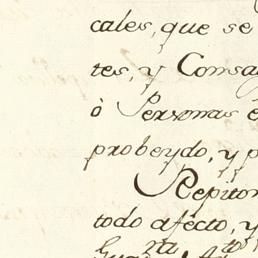 cales, que se
tes, y Consa
ò Personas é
probeydo, y p
Repito
todo afecto, y